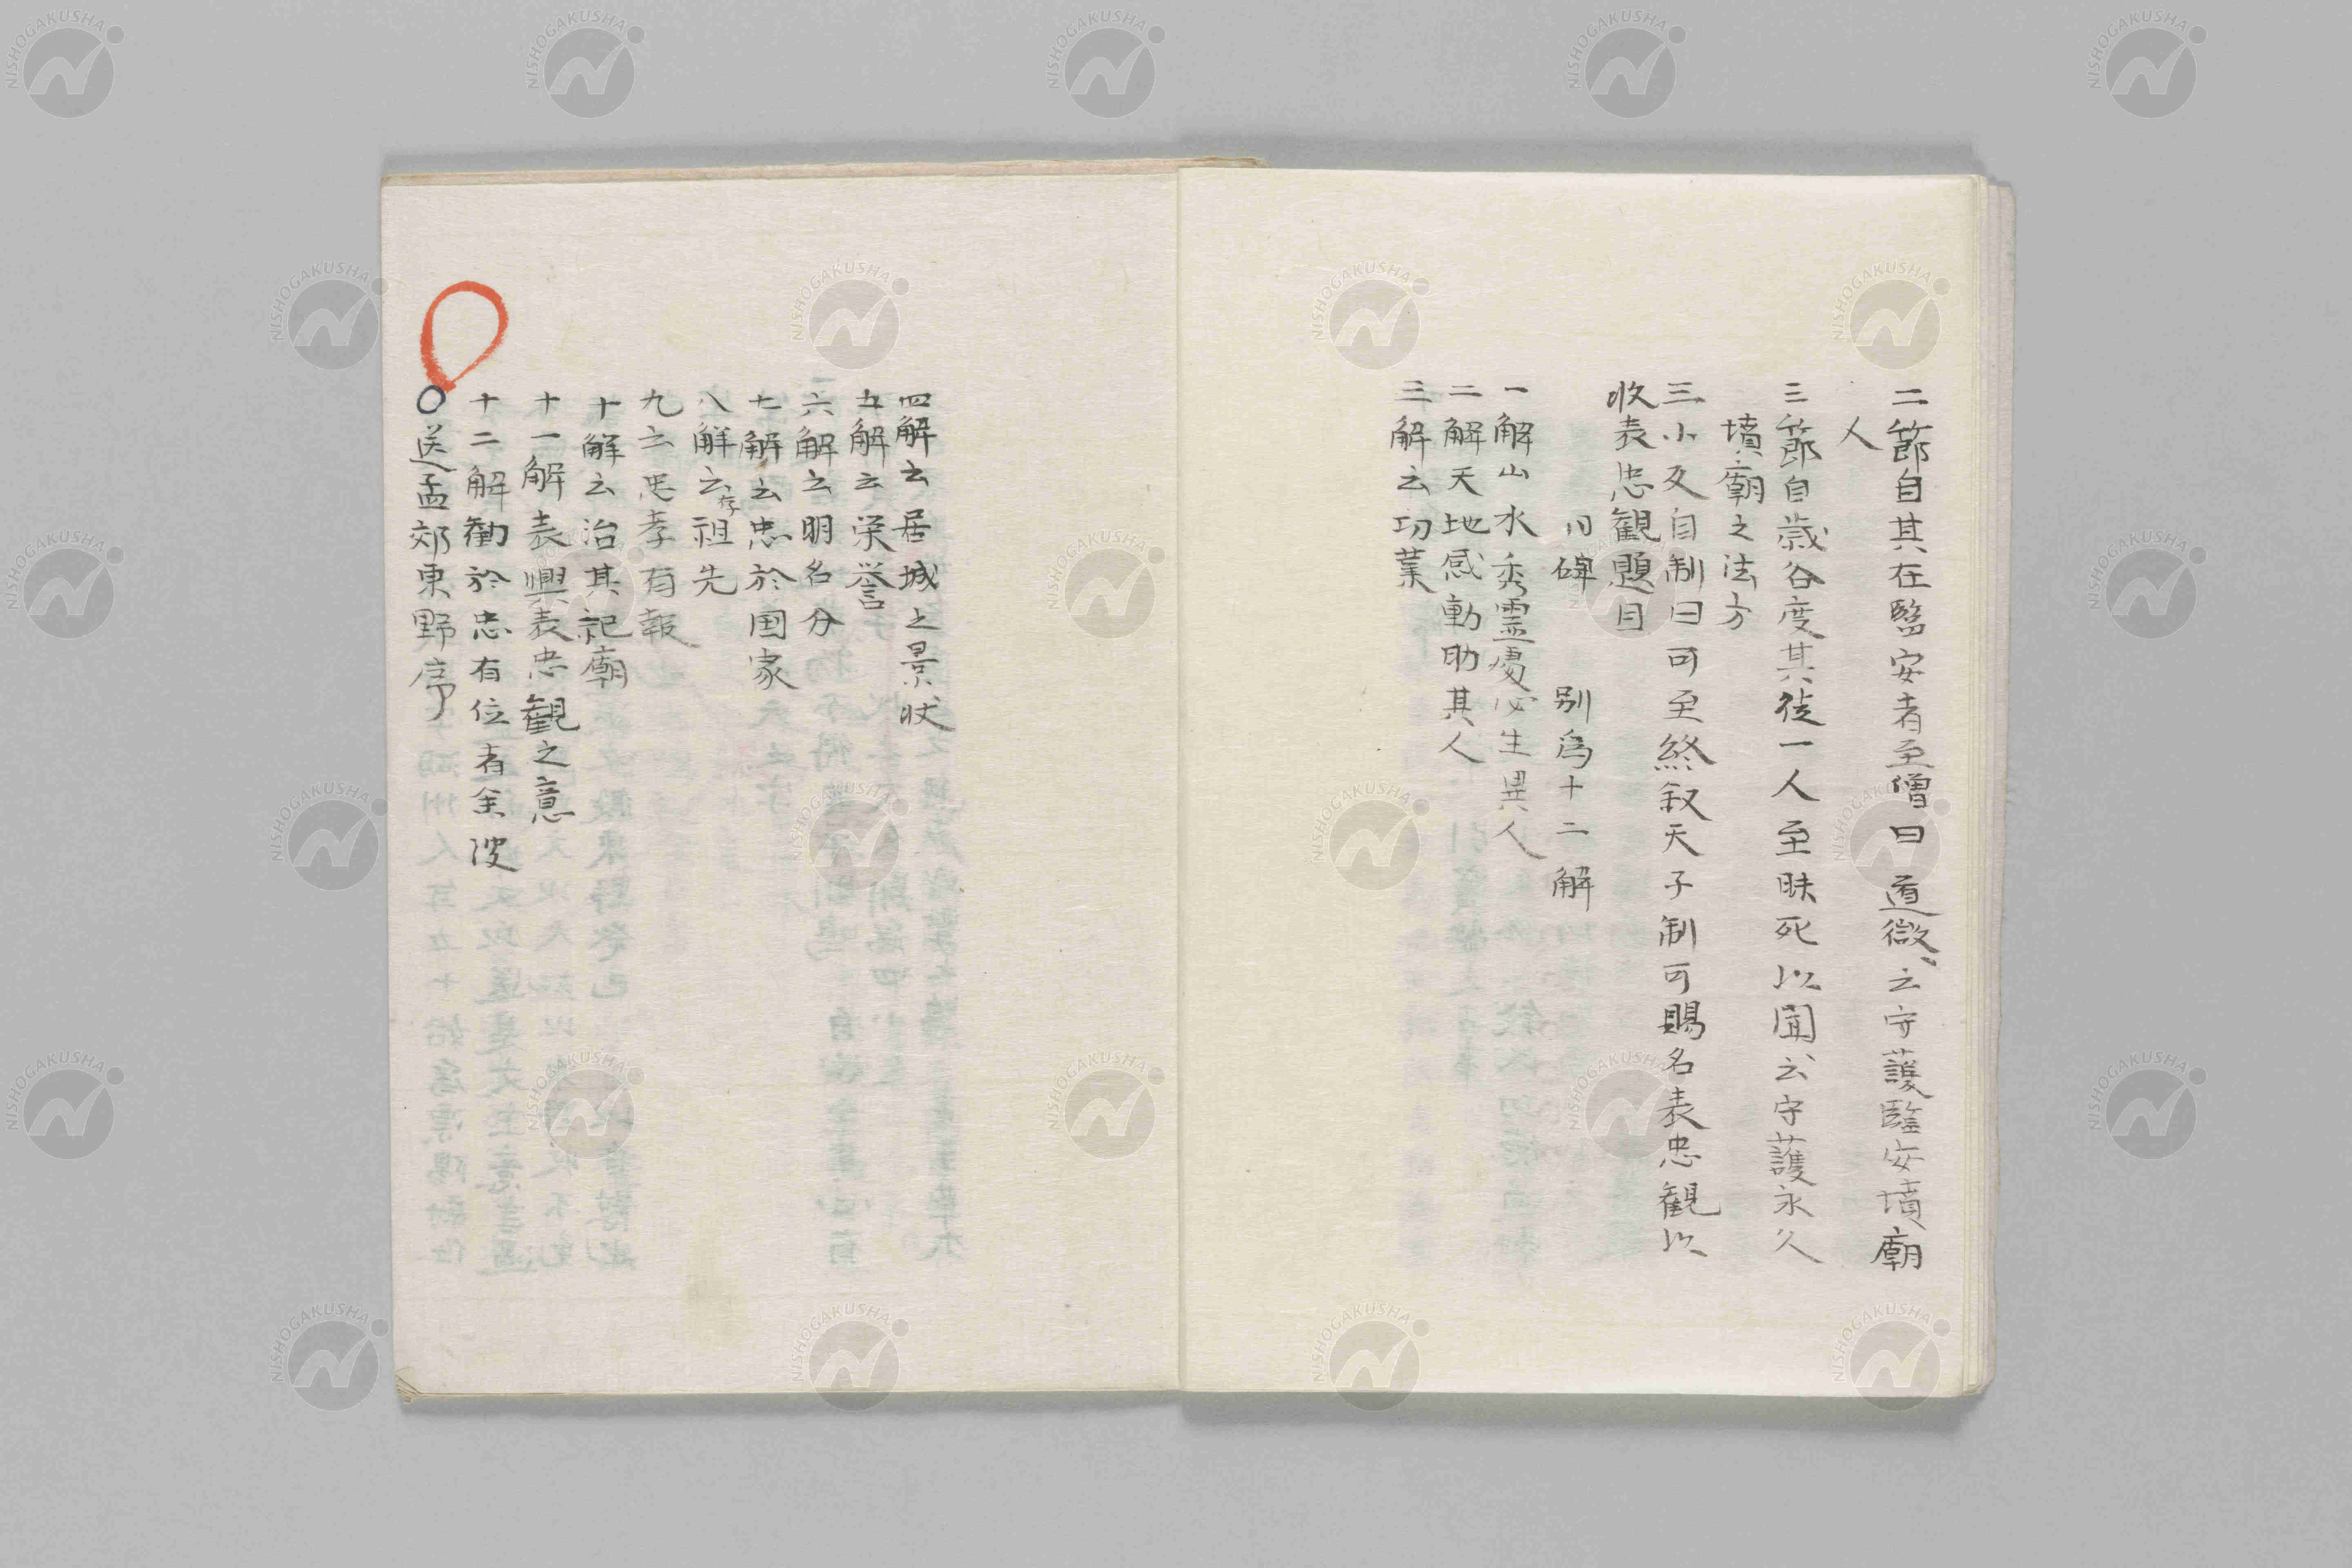 二節自其在臨安者至僧曰道微云守護臨安墳廟
人
三節自歳各度其徒一人至昧死以聞云守護永久
墳廟之法方
三小文自制曰可至終叙天子制可賜名表忠観以
收表忠観題目
別為十二解
一解山水秀霊處必生異人
二解天地感動助其人
三解云功業
四解云居城之景状
五解云栄誉
六解云明名分
七解云忠於国家
八解云存祖先
九云忠孝有報
十解云治其祀廟
十一解表興表忠観之意
十二解勧於忠有位者
○送孟郊東野序
NISHOGAKUSHA